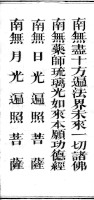 南無盡十方遍法界未來一切諸佛
南無藥師琉璃光如來本願功德經
南無日光遍照菩薩
南無月光遍照菩薩